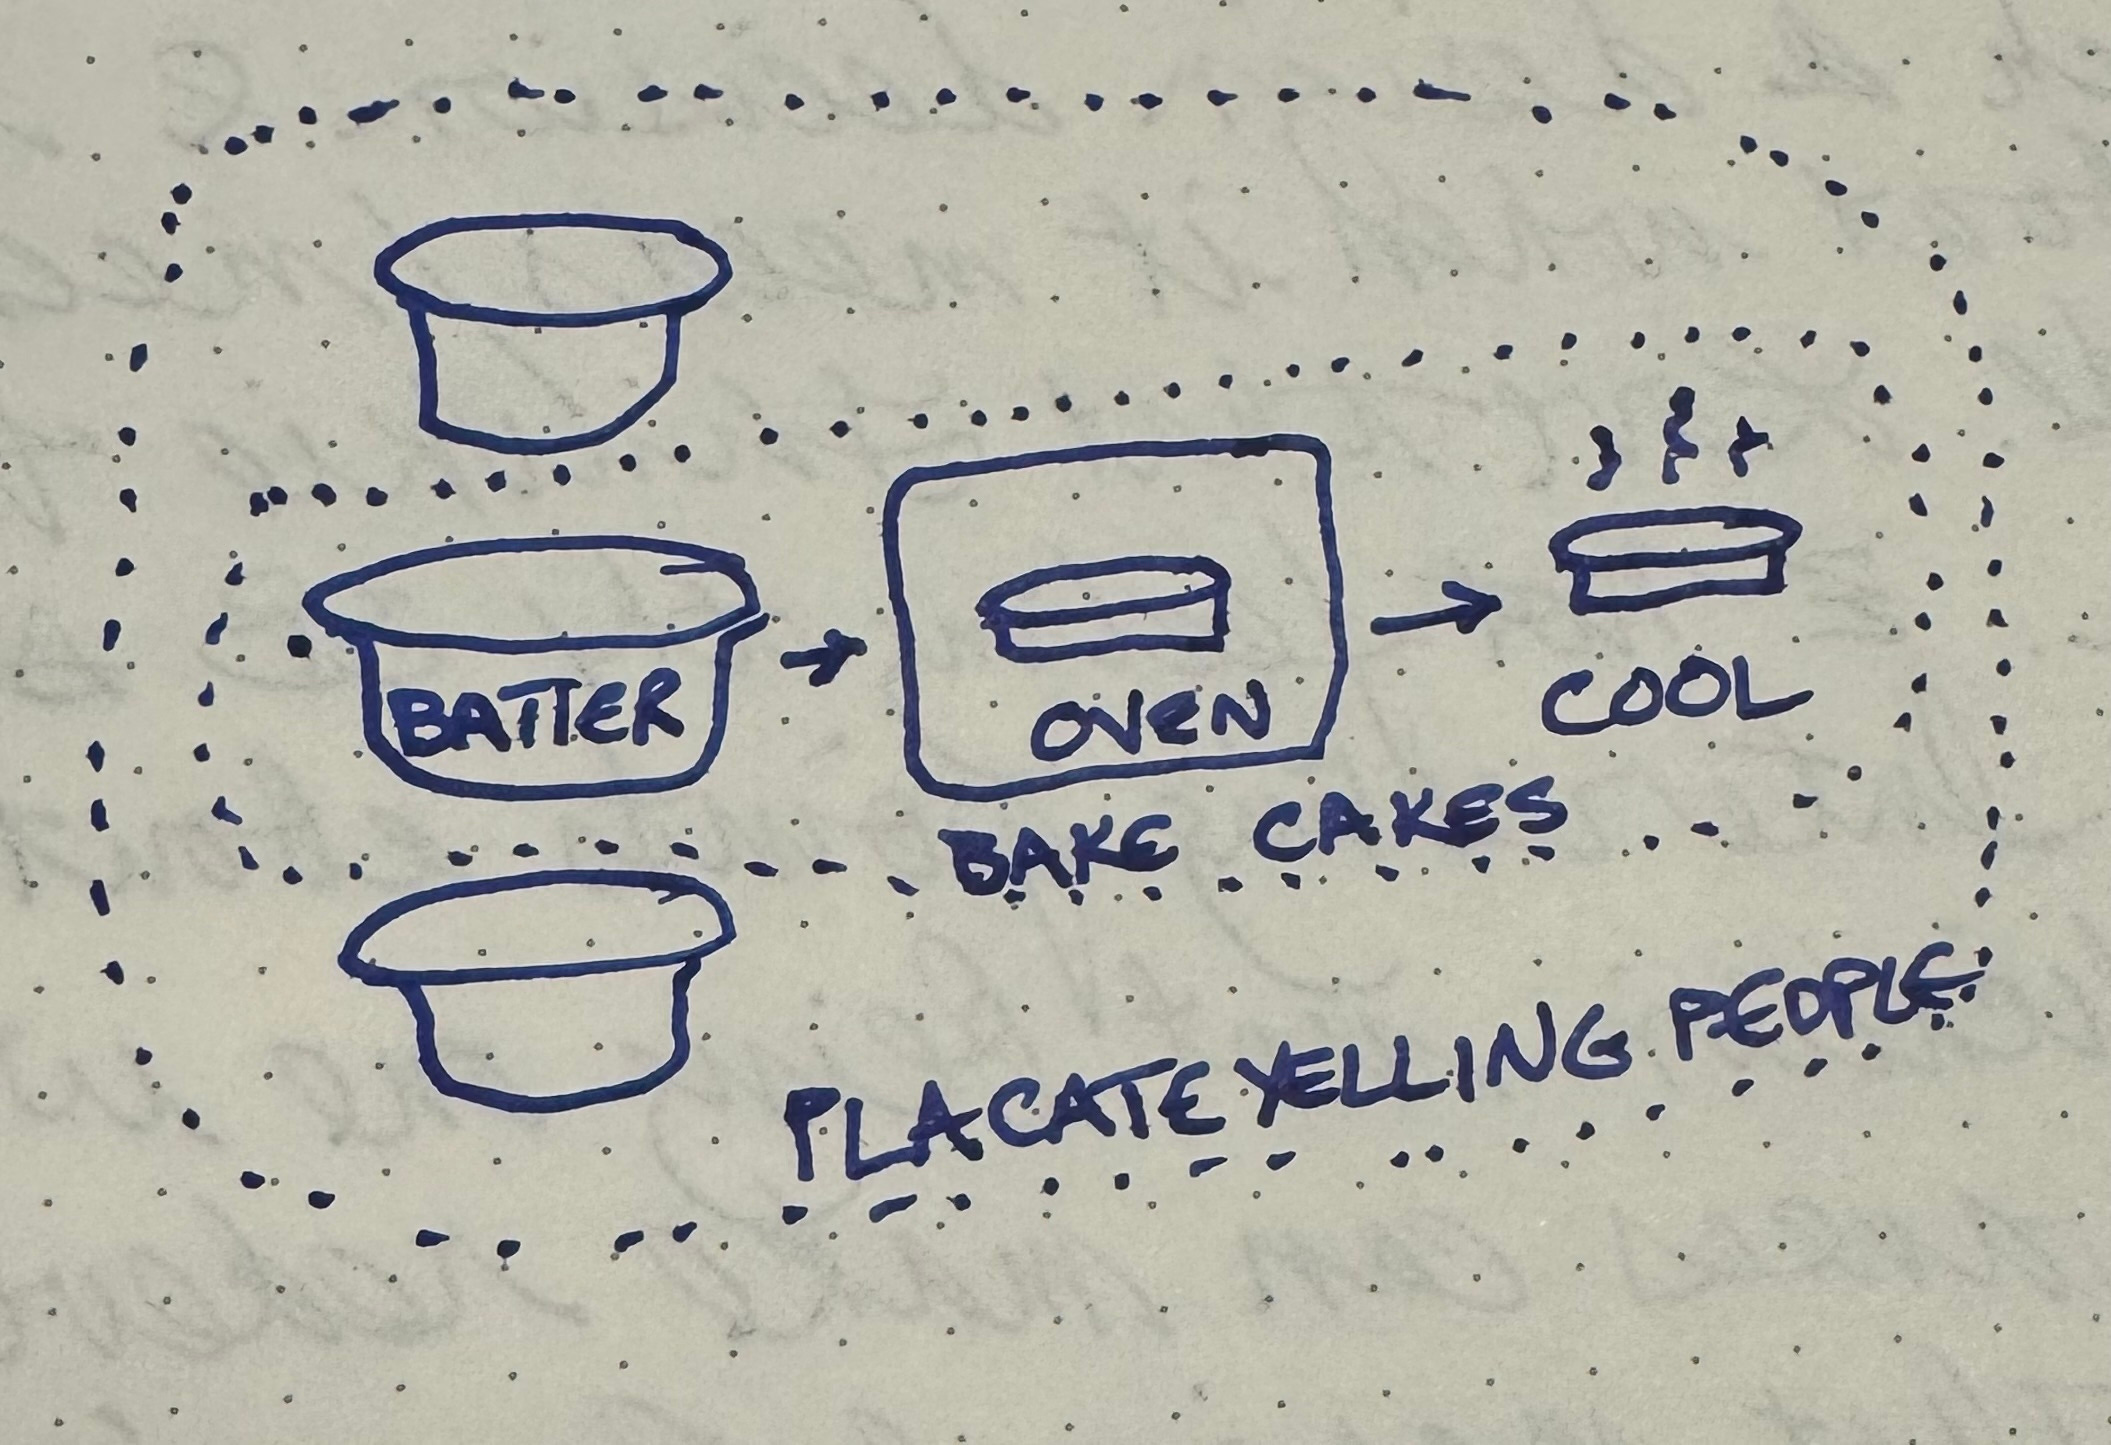 BATTER
OVEN
COOL
BAKE CAKES
PLACATE YELLING PEOPLE